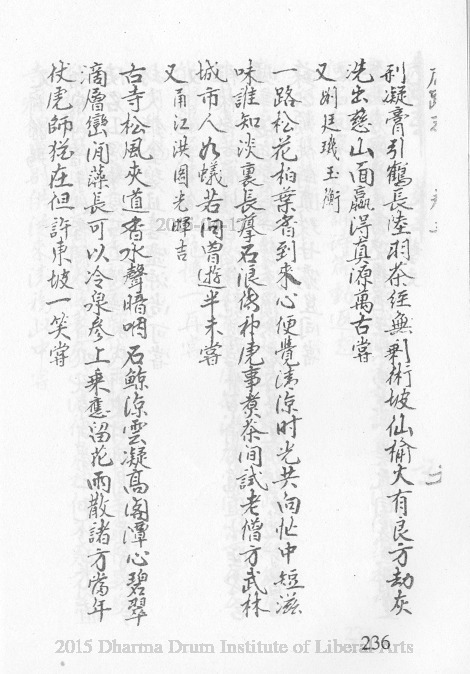 凝膏引鶴長陸羽茶經無剩術坡仙榆火有良方劫灰
洗出慈山面贏得真源萬古嘗
又 廷璣玉衡
一路松花柏葉香到來心便覺清涼时光共向忙中短滋
味誰知淡裏長石浪傳神虎事煑茶间試老僧方武林
城市人如蟻若问曾遊半未嘗
又 甬江洪图光暉吉
古寺松風夾道香水聲暗石鯨涼雲凝高阁潭心碧翠
滴層巒藻長可以冷泉參上乘應留花雨散諸方當年
伏虎師猶在但許東坡一笑嘗
236
2015 Dharma Drum Institute of Liberal Arts